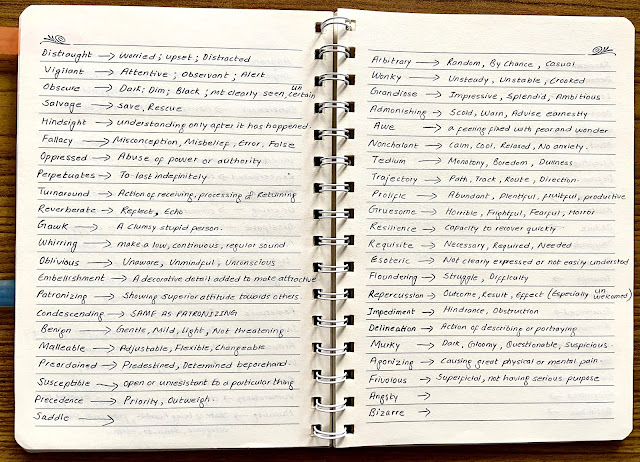 Distraught → Worried ; upset ; Distracted
Vigilant → Attentive ; Observant ; Alert
Obscure → Dark ; Dim ; Black ; not clearly seen, uncertain
Salvage → Save, Rescue
Hindsight → understanding only after it has happened.
Fallacy → Misconception, Misbelief, Error, False
Oppressed → Abuse of power or authority
Perpetuates → To last indefinitely
Turnaround → Action of receiving, processing & Returning
Reverberate → Reflect, Echo
Gawk → A clumsy stupid person.
Whirring → make a low, continuous, regular sound
Oblivious → Unaware, Unmindful, Unconscious
Embellishment → A decorative detail added to make attractive
Patronizing → Showing superior attitude towards others
Condescending → SAME AS PATRONIZING
Benign → Gentle, Mild, Light, Not threatening.
Malleable → Adjustable, Flexible, Changeable
Preordained → Predestined, Determined beforehand.
Susceptible → open or unresistant to a particular thing
Precedence → Priority, Outweigh.
Saddle →
Arbitrary → Random, By Chance, Casual
Wonky → Unsteady, Unstable, Crooked
Grandiose → Impressive, Splendid, Ambitious
Admonishing → Scold, Warn, Advise earnestly
Awe → a feeling fixed with fear and wonder
Nonchalant → Calm, Cool, Relaxed, No anxiety.
Tedium → Monotony, Boredom, Dullness
Trajectory → Path, Track, Route, Direction.
Prolific → Abundant, Plentiful, fruitful, productive
Gruesome → Horrible, Frightful, Fearful, Horror
Resilience → capacity to recover quickly
Requisite → Necessary, Required, Needed
Esoteric → Not clearly expressed or not easily understood
Floundering → Struggle, Difficulty
Repercussion → Outcome, Result, Effect (Especially unwelcomed)
Impediment → Hindrance, Obstruction
Delineation → Action of describing or portraying
Murky → Dark, Gloomy, Questionable, suspicious.
Agonizing → Causing great physical or mental pain.
Frivolous → Superficial, not having serious purpose
Angsty →
Bizarre →